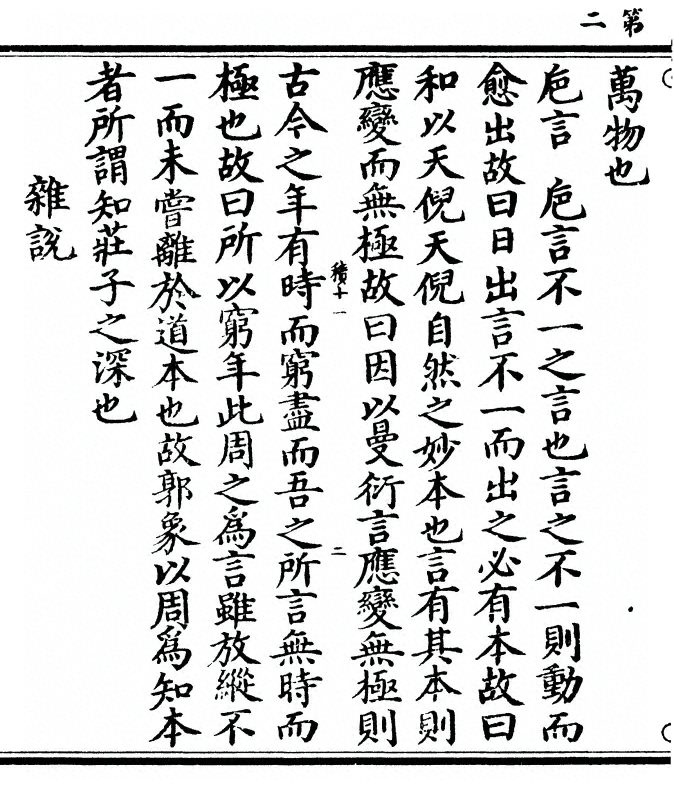 第二
萬物也
巵言　巵言不一之言也言之不一則動而
愈出故曰日出言不一而出之必有本故曰
和以天倪天倪自然之妙本也言有其本則
應變而無極故曰因以曼衍言應變無極則
積十一
二
古今之年有時而窮盡而吾之所言無時而
極也故曰所以窮年此周之爲言雖放縱不
一而未嘗離於道本也故郭象以周爲知本
者所謂知莊子之深也
雜説